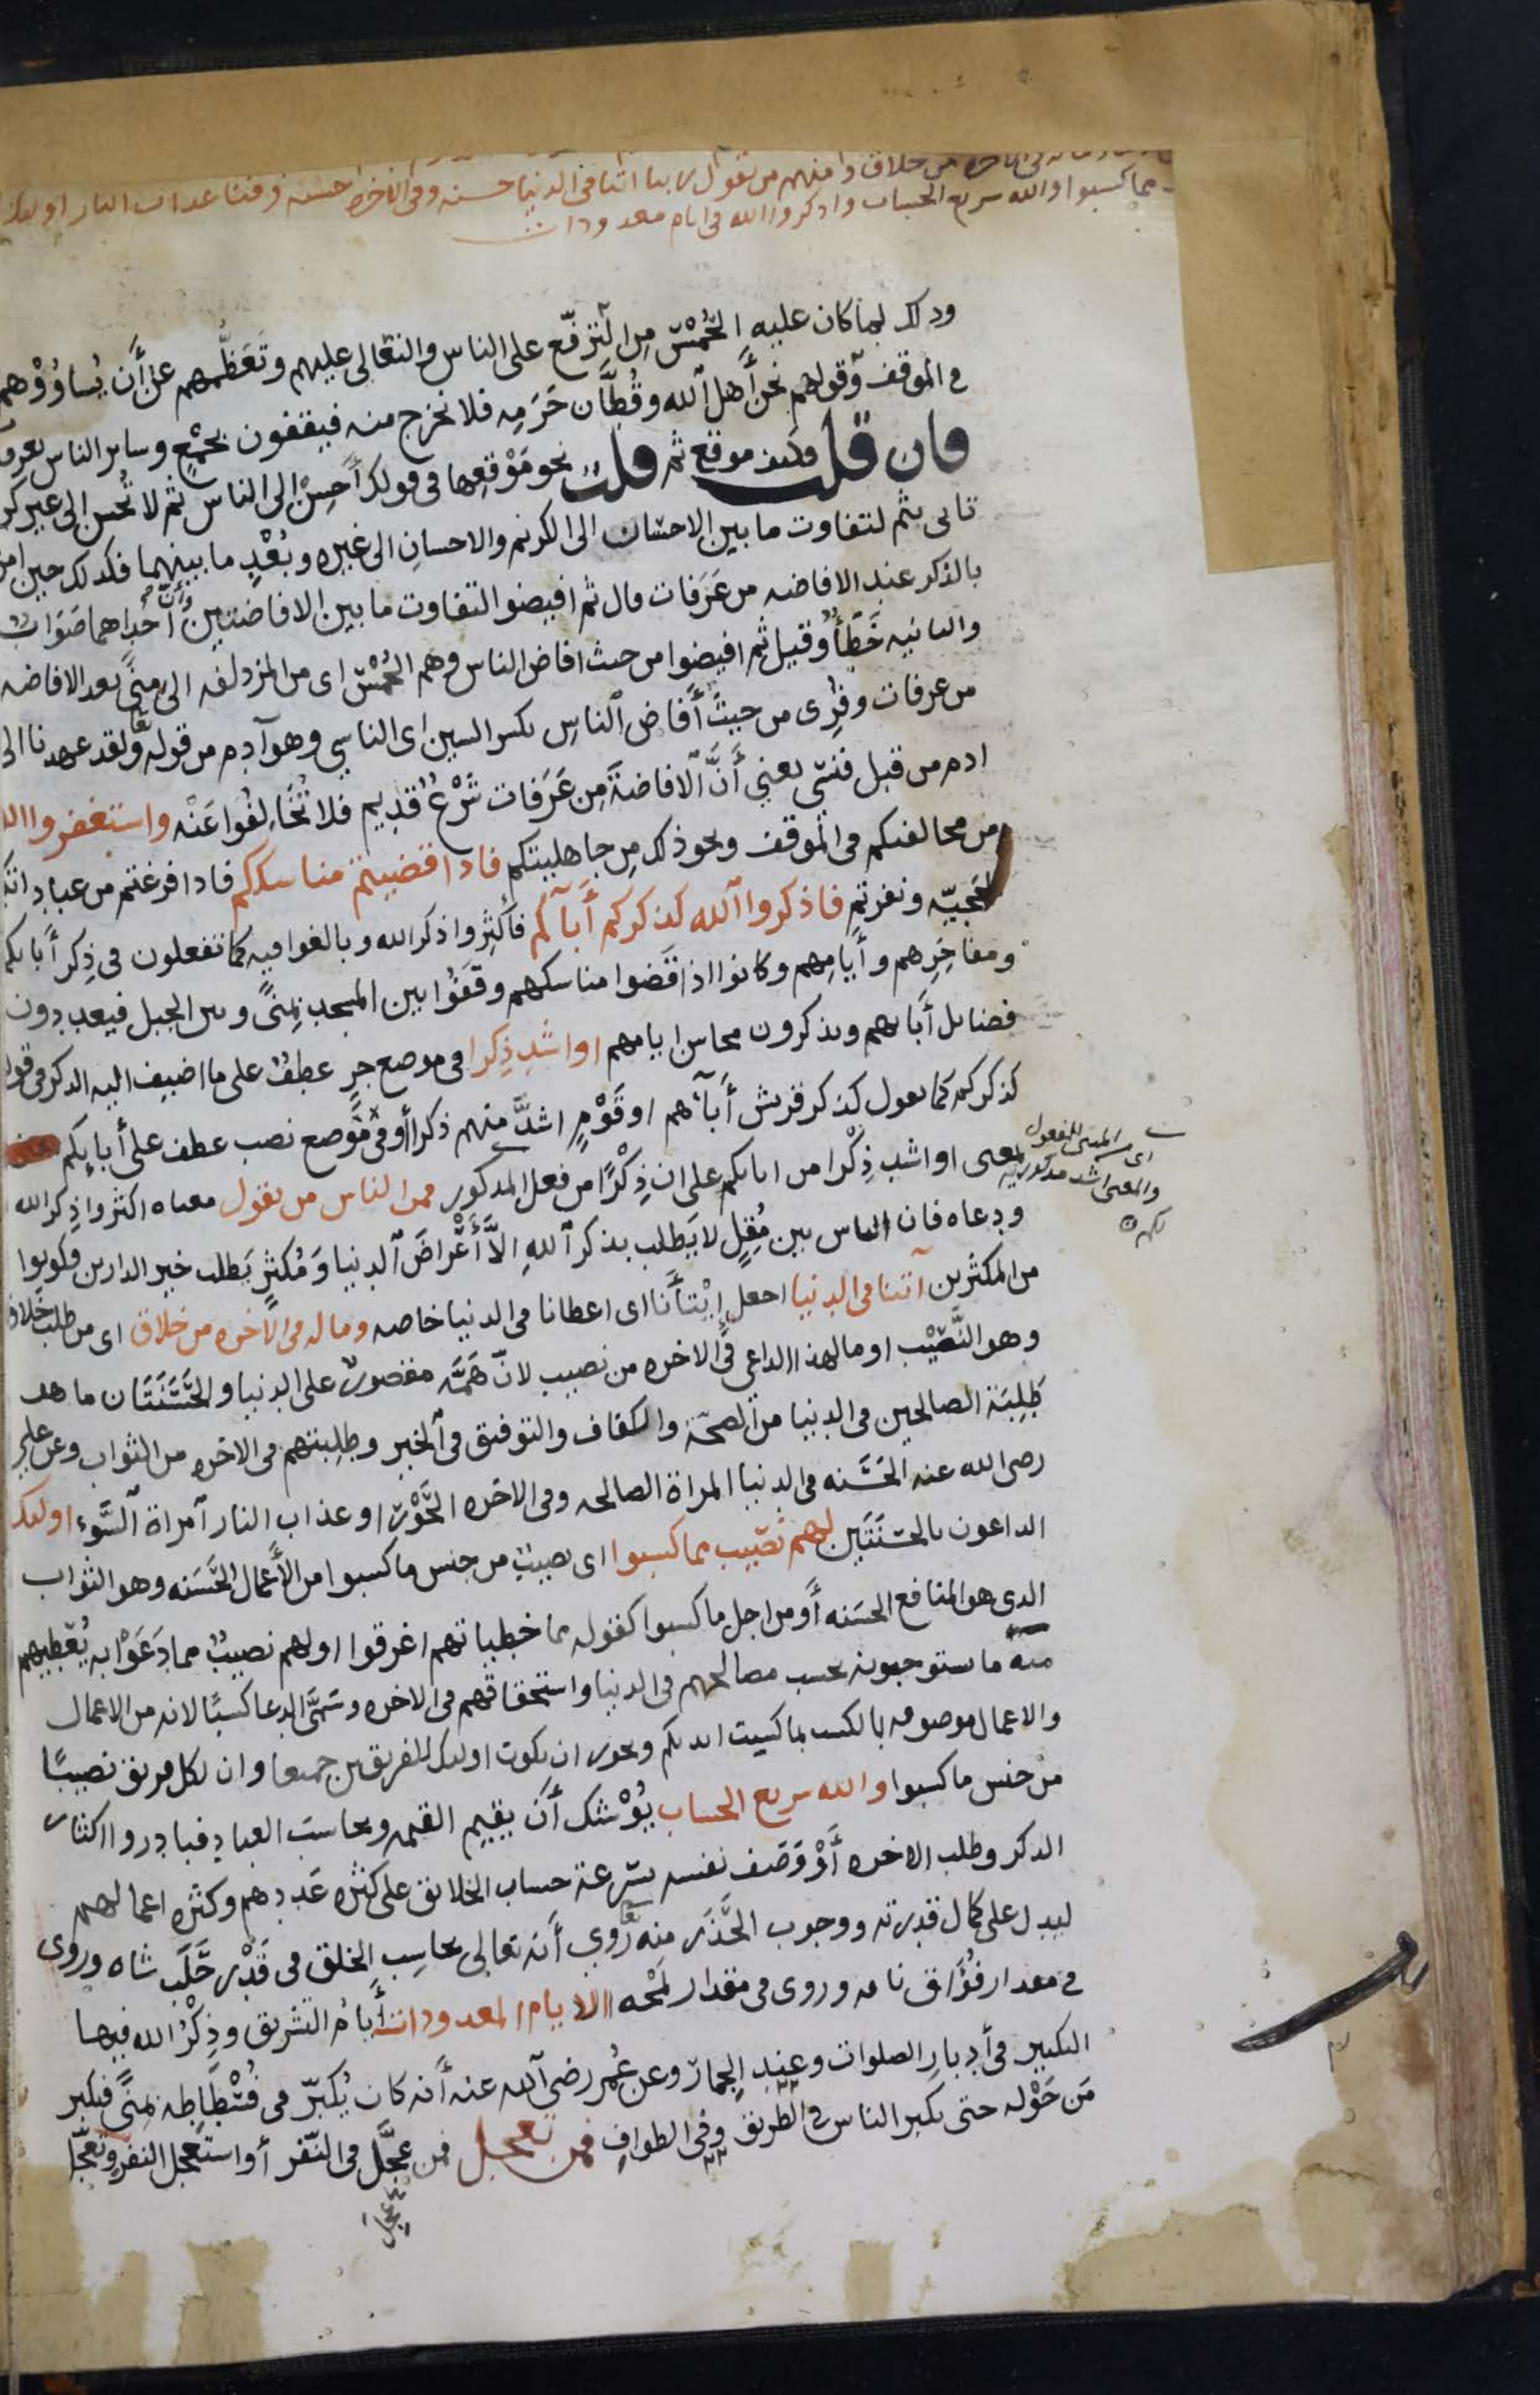 من خلاق ومنهم من يقول ربنا اتنا في الدنيا حسنه وفي الاخره حسنه وقنا عذاب النار اوليك
مما كسبوا والله سريع الحساب واذكروا الله في ايام معدودات
وذلك لما كان عليه الحُمْسُ مِن الترفّع على الناس والتعالي عليهم وتَعَظُّمهم عن أَن يُساوُوْهم
في الموقف وقولهم نحن أَهل الله وقُطَّان حَرَمِه فلا نخرج منه فيقفون بجَمْعٍ وساير الناس بعرفات
فان قلت فكيف موقع ثم قلت نحو مَوْقعِها في قولك أَحسِنْ إلى الناس ثم لا تُحسن إلى غير كريم
تاتى بثم لتفاوت ما بين الاحسان الى الكريم والاحسانِ الى غيره وبُعْدِ ما بينهما فكذلك حين امرهم
بالذكر عند الافاضه من عَرَفات قال ثم افيضوا لتفاوت ما بين الافاضتين وأنّ أحداهما صَوَاب
والثانيه خَطَأٌ وقيل ثم افيضوا من حيث افاض الناس وهم الحُمْسُ اى من المزدلفه الى مِنًى بعد الافاضه
من عرفات وقرِى من حيثُ أَفاض الناسِ بكسر السين اى الناسي وهو آدم من قوله تعا ولقد عهدنا الى
ادم من قبل فنسي يعني أَنَّ الافاضةَ مِن عَرَفات شَرْعٌ قديم فلا تُخَالِفُوا عَنْه واستغفروا الله
من مخالفتكم في الموقف ونحو ذلك مِن جاهليتكم فاذا قضيتم مناسككم فاذا فرغتم من عباداتكم
الحَجيّه ونفرتم فاذكروا الله كذكركم أَبآكم فأكثِروا ذكر الله وبالغوا فيه كما تفعلون في ذِكر أَبايكم
ومفاخِرِهم وأيامِهم وكانوا اذا قَضوا مناسكهم وقفُوا بين المسجد بمِنًى وبين الجبل فيعددون
فضايل أَبايهم ويذكرون محاسن ايامهم او اشد ذِكرا في موضع جرٍ عطفٌ على ما اضيف اليه الذكر في قوله
كذكركم كما تقول كذكر قريش أَبآءهم او قَوْمٍ اشدَّ منهم ذكرا أو في مَوضع نصب عطف على أبايكم
بمعنى او اشد ذِكْرا من ابايكم على ان ذِكْرًا من فعل المذكور فمن الناس من يقول معناه اكثروا ذِكر الله
اى من المبنى للمفعول
والمعنى اشد مذكوريه
لكم
ودعاه فان الناس بين مُقِلٍ لا يَطلب بذكر الله الاَّ أَعْراضَ الدنيا وَمُكثِرٍ يَطلب خير الدارين فكونوا
من المكثرين آتنا في الدنيا اجعل إيْتأَنا اى اعطانا في الدنيا خاصه وما له في الآخره من خلاق اى من طلب خَلاق
وهو النَّصِيْب او ما لهذا الداعي في الاخره من نصيب لانّ هَمَّه مقصورٌ على الدنيا والحَسَنَتَان ما هو
طَلِبَة الصالحين في الدنيا من الصحّة والكفاف والتوفيق في الخير وطلِبتهم في الاخره من الثواب وعن علي
رضى الله عنه الحَسَنه في الدنيا المراة الصالحه وفي الاخره الحَوْرَا وعذاب النار آمراة السَّوء اوليك
الداعون بالحسَنَتَين لهم نصيب مما كسبوا اى نصيبٌ من جنس ما كسبوا من الأَعمال الحَسَنه وهو الثواب
الذى هو المنافع الحسَنه أَو من اجل ما كسبوا كقوله مما خطياتهم اغرقوا او لهم نصيبٌ مما دَعَوْا به يُعْطيهم
منه ما ستوجبونه بحسب مصالحهم في الدنيا واستحقاقهم في الاخره وسَمَّى الدعا كسبًا لانه من الاعمال
والاعمال موصوفه بالكسب بما كسبت ايديكم ويجوز ان يكون اوليك للفريقين جميعا وان لكل فريق نصيبًا
من جنس ما كسبوا والله سريع الحساب يُوْشك أَن يقيم القيمه ويحاسبَ العباد فبادروا اكثار
الذكر وطلب الاخره أَوْ وَصَف نفسه بسُرعة حساب الخلايق على كثره عَددِهم وكثره اعمالهم
ليدل على كمال قدرته ووجوب الحَذَر منه تعا رُوي أَنه تعالى يحاسِب الخلق في قَدْر حَلَب شاه وروى
في مقدار فُوَاق ناقه وروى في مقدار لمَحْه الايام المعدودات أَيامُ التشريق وذِكْرُ الله فيها
التكبير في أَدبارِ الصلوات وعند الجمار وعن عُمر رضى الله عنه أَنه كان يُكبّر في فُسْطَاطِه بمنًى فيكبر
مَن حَوْله حتى يكبر الناس في الطريق وفي الطوافِ فمن تعجل فمن عجَّل في النَفر أو استَعجل النفر وتَعجّل